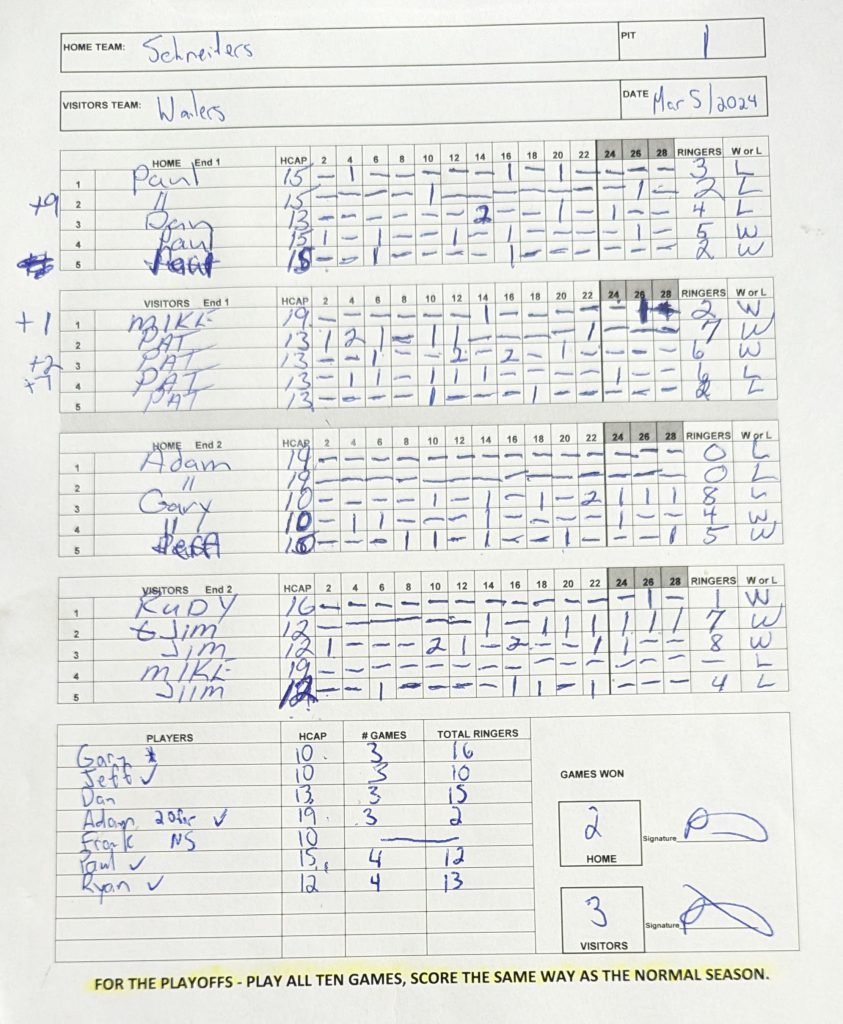 HOME TEAM: Schneiders PIT 1
VISITORS TEAM: Wailers DATE Mar 5/2024
HOME End 1 HCAP 2 4 6 8 10 12 14 16 18 20 22 24 26 28 RINGERS W or L
1 Paul 15 - 1 - - - - - 1 - 1 - - - - 3 L
+9 2 11 15 - - - - 1 - - - - - - - 1 - 2 L
3 Dan 13 - - - - - - 2 - - 1 - 1 - - 4 L
4 Paul 15 1 - 1 - - 1 - 1 - - - - 1 - 5 W
5 Paul 15 - - 1 - - - - 1 - - - - - - 2 W
VISITORS End 1 HCAP 2 4 6 8 10 12 14 16 18 20 22 24 26 28 RINGERS W or L
+1 1 MIKE 19 - - - - - - 1 - - - - - 1 2 W
2 PAT 13 1 2 1 - 1 1 - - - - 1 - - - 7 W
+2 3 PAT 13 - - 1 - - 2 - 2 - 1 - - - - 6 W
+7 4 PAT 13 - 1 1 - 1 1 1 - - - - 1 - - 6 L
5 PAT 13 - - - - 1 - - - 1 - - - - - 2 L
HOME End 2 HCAP 2 4 6 8 10 12 14 16 18 20 22 24 26 28 RINGERS W or L
1 Adam 19 - - - - - - - - - - - - - - 0 L
2 11 19 - - - - - - - - - - - - - - 0 L
3 Gary 10 - - - - 1 - 1 - 1 - 2 1 1 1 8 L
4 11 10 - 1 1 - - - 1 - - - - 1 - - 4 W
5 10 - - - 1 1 - 1 - - 1 - - - 1 5 W
VISITORS End 2 HCAP 2 4 6 8 10 12 14 16 18 20 22 24 26 28 RINGERS W or L
1 RUDY 16 - - - - - - - - - - - - 1 - 1 W
2 Jim 12 - - - - - - 1 - 1 1 1 1 1 1 7 W
3 JIM 12 1 - - - 2 1 - 2 - - 1 1 - - 8 W
4 MIKE 19 - - - - - - - - - - - - - - - L
5 JIIM 12 - - 1 - - - - 1 1 - 1 - - - 4 L
PLAYERS HCAP # GAMES TOTAL RINGERS
Gary 10 3 16
Jeff ✓ 10 3 10
Dan 13 3 15
Adam ✓ 19 3 2
Frank NS 10 —
Paul ✓ 15 4 12
Ryan ✓ 12 4 13
GAMES WON
2
HOME
Signature
3
VISITORS
Signature
FOR THE PLAYOFFS - PLAY ALL TEN GAMES, SCORE THE SAME WAY AS THE NORMAL SEASON.